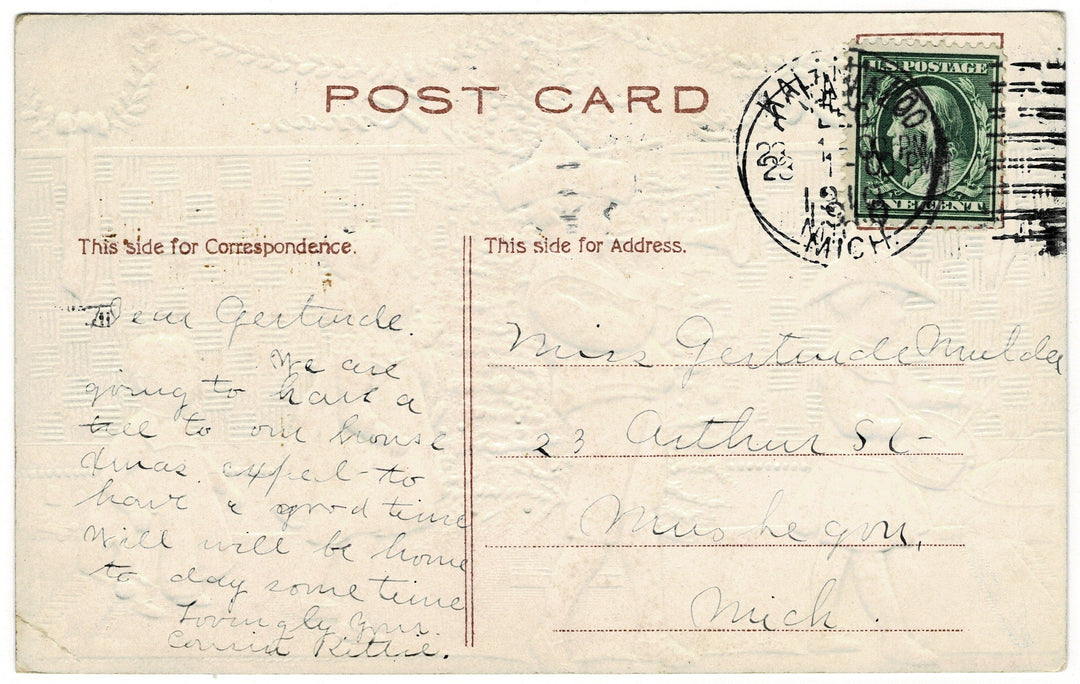 POST CARD
U.S. POSTAGE
ONE CENT
KALAMAZOO
MICH.
This side for Correspondence.
Dear Gertrude.
We are
going to have a
tree to our house
Xmas. expect to
have a good time
Will will be home
to day some time
Lovingly Your
Cousin Kittie.
This side for Address.
Miss Gertrude Mulder
23 Arthur St
Muskegon,
Mich.